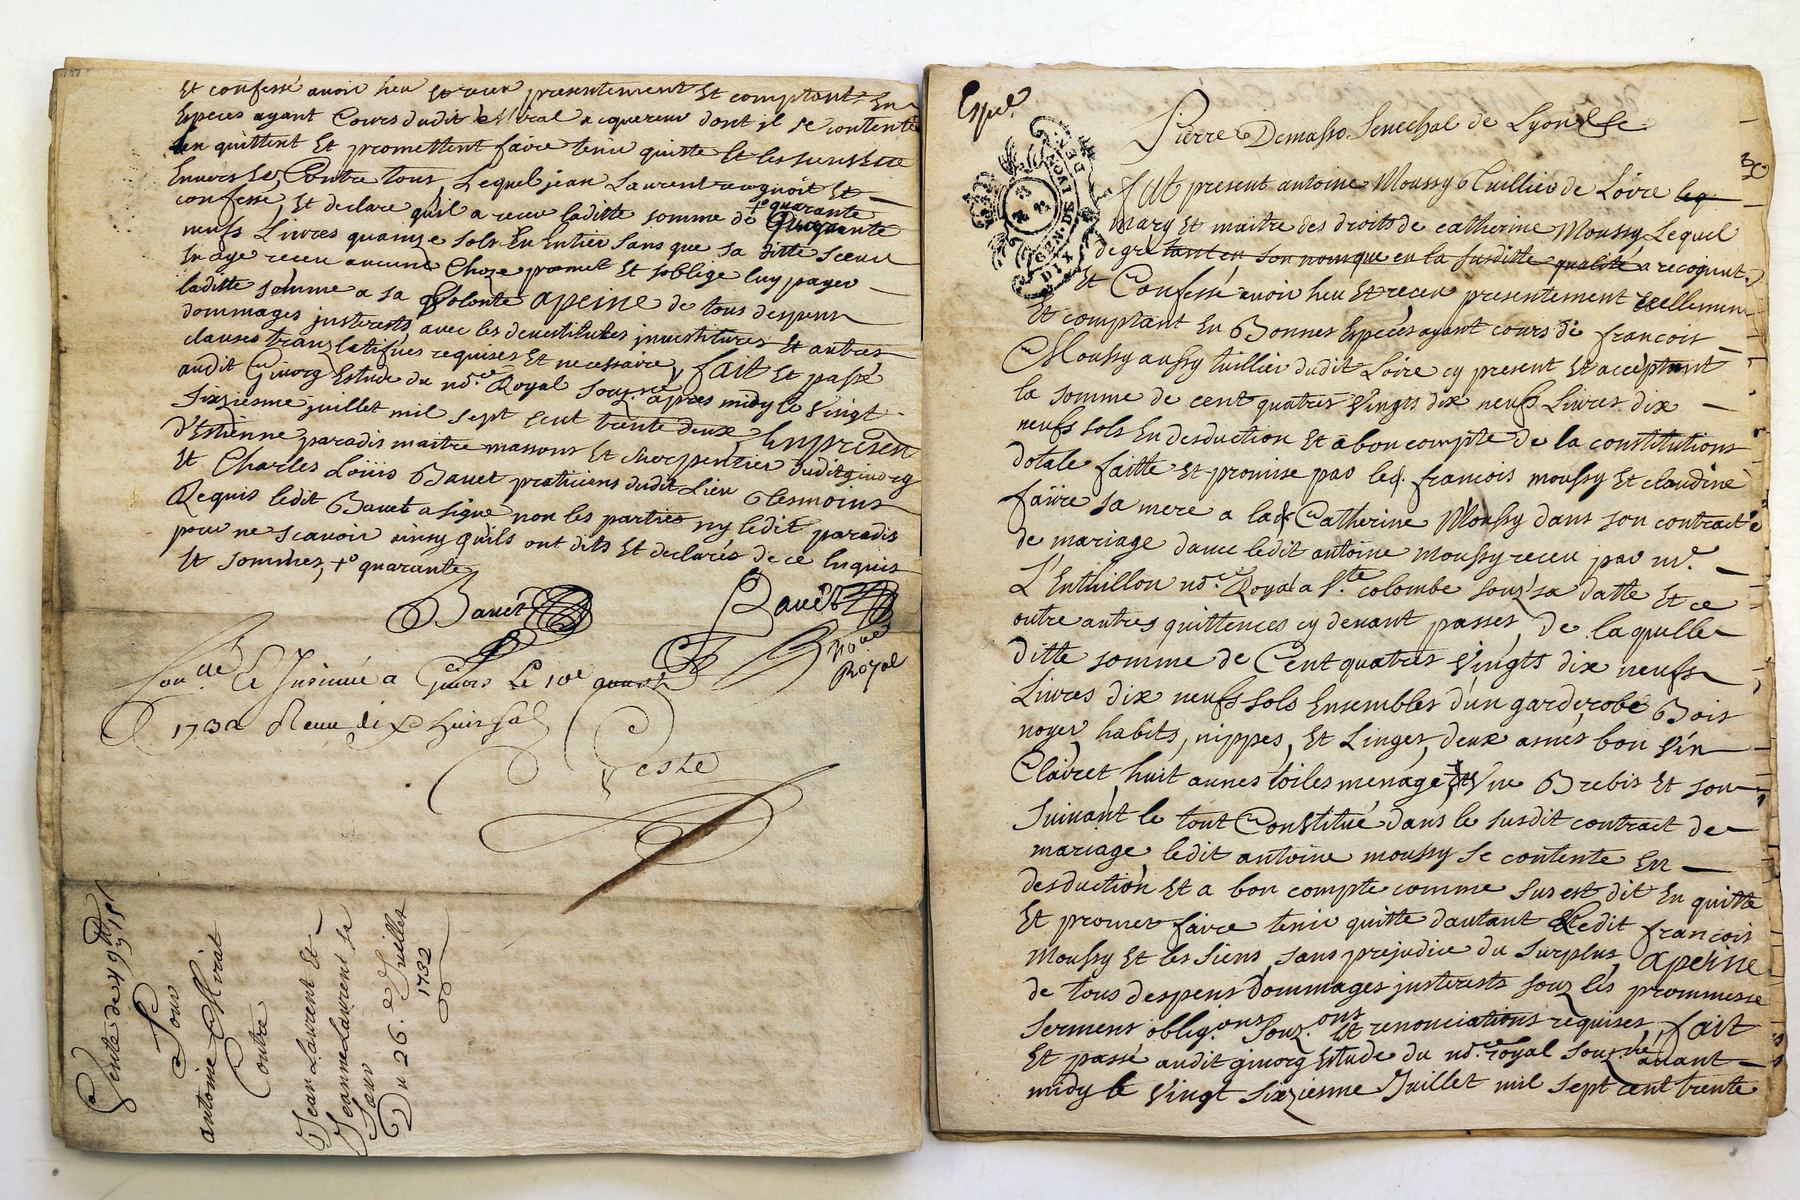 Et confessé avoir heu et receu presentement Et comptant En
Especes ayant Cours dudit Mirat acquereur dont il se contente
len quittent Et promettent faire tenir quitte Et les siens
Envers Et Contre tous, Lequel jean Laurent recognoit Et
confesse, Et declare qu'il a receu laditte somme de +° quarante
neufs Livres quainze sols En Entier sans que sa ditte Soeur
En aye receu aucune Choze promet Et soblige luy payer
laditte somme a sa volonté apeine de tous despens
dommages jnterests, avec les devestitures jnvestitures Et autres
clauses translatifves requises Et necessaire, fait Et passé
audit Givorg Estude du no.re Royal souz.né apres midy le vingt
sixziesme juillet mil sept cent trente deux, En presen
d'Estienne paradis maitre massons Et charpentier dudit givorg
Et Charles Loüis Bavet praticiens dudit Lieu tesmoins
Requis ledit Bavet a signé non les parties ny ledit paradis
pour ne scavoir ainsy qu'ils ont dits Et declarés de ce Enquis
Et sommés, +° quarante
Bavet
Bavet
no.re
Royal
Con.lle Et Insinué a Givors Le 10e aoust
1732 Receu dix huit sol
Teste
Vente de 49lt 15s
Pour
antoine Mirat
Contre
Jean Laurent Et
Jeanne Laurent sa
Sœur
Du 26.e Juillet
1732
Exped.
GEN. DE LYON
DIX DEN.
Pierre Demasso Senechal de Lyon &c
fut present antoine Moussy Tuillier de Loire
mary Et maitre des droits de catherine Moussy Lequel
de gré tant en son nom que en la susditte qualité a recognut
Et Confessé avoir heu Et receu presentement reellement
Et comptant En Bonnes Especes ayant cours de françois
Moussy aussy tuillier dudit Loire cy present Et acceptant
la somme de cent quatres vingts dix neufs Livres dix
neufs sols En desduction Et a bon compte de la constitutions
dotale faitte Et promise par led. françois moussy Et claudine
faure sa mere a lad. Catherine Moussy dans son contract
de mariage d'avec ledit antoine moussy receu par m.e
L'Entillon no.re Royal a S.te colombe souz sa datte Et ce
outre autres quittences cy devant passes, De laquelle
Ditte somme de Cent quatres vingts dix neufs
Livres dix neufs sols Ensembles d'un garderobe Bois
noyer, habits, nippes, Et Linges, deux asnés bon vin
Clairet, huit aunes toiles menage, Une Brebis Et son
Suivant le tout Constitué dans le susdit contract de
mariage, ledit antoine moussy se contente En
desduction Et a bon compte comme sus est dit En quitte
Et promet faire tenir quitte dautant Ledit françois
Moussy Et les Siens, sans prejudice du surplus, apeine
de tous despens dommages jnterests souz les prommesse
serment oblig.ons souz.ons Et renonciations requises, fait
Et passé audit givorg Estude du no.re royal souz.né avant
midy le vingt sixziesme Juillet mil sept cent trente